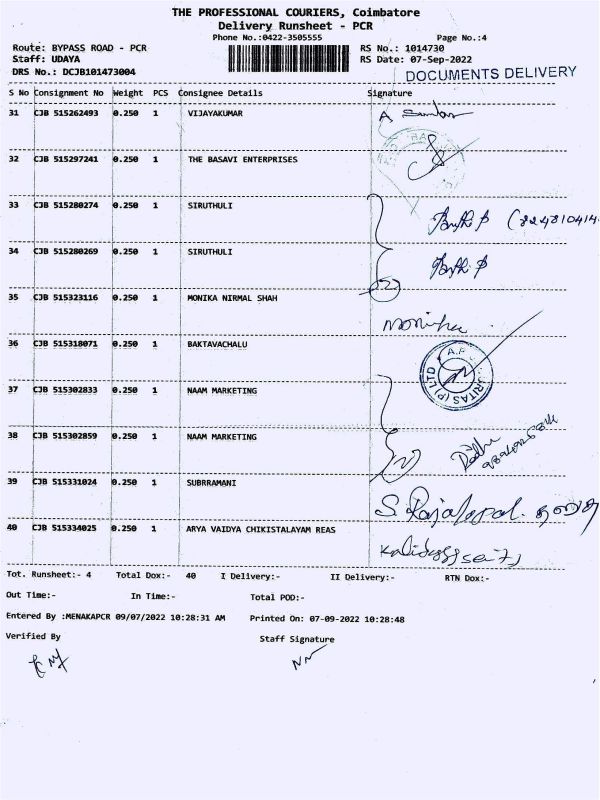 THE PROFESSIONAL COURIERS, Coimbatore
Delivery Runsheet - PCR
Phone No.:0422-3505555 Page No.:4
Route: BYPASS ROAD - PCR RS No.: 1014730
Staff: UDAYA RS Date: 07-Sep-2022
DRS No.: DCJB101473004 DOCUMENTS DELIVERY
S No Consignment No Weight PCS Consignee Details Signature
31 CJB 515262493 0.250 1 VIJAYAKUMAR
32 CJB 515297241 0.250 1 THE BASAVI ENTERPRISES
33 CJB 515280274 0.250 1 SIRUTHULI
34 CJB 515280269 0.250 1 SIRUTHULI
35 CJB 515323116 0.250 1 MONIKA NIRMAL SHAH
36 CJB 515318071 0.250 1 BAKTAVACHALU
37 CJB 515302833 0.250 1 NAAM MARKETING
38 CJB 515302859 0.250 1 NAAM MARKETING
39 CJB 515331024 0.250 1 SUBRRAMANI
S. Rajagopal
40 CJB 515334025 0.250 1 ARYA VAIDYA CHIKISTALAYAM REAS
Tot. Runsheet:- 4 Total Dox:- 40 I Delivery:- II Delivery:- RTN Dox:-
Out Time:- In Time:- Total POD:-
Entered By :MENAKAPCR 09/07/2022 10:28:31 AM Printed On: 07-09-2022 10:28:48
Verified By Staff Signature